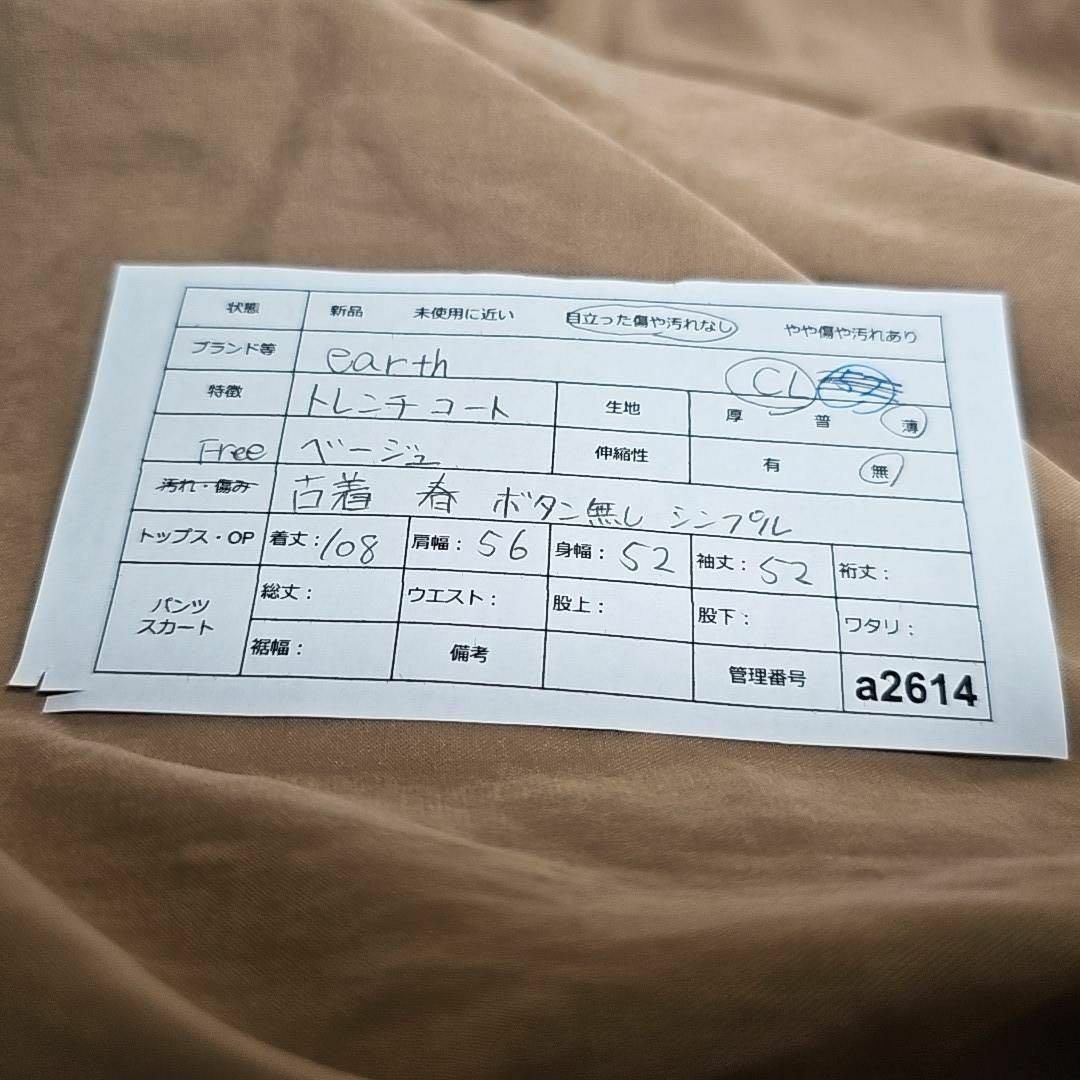 状態 新品 未使用に近い 目立った傷や汚れなし やや傷や汚れあり
ブランド等 earth CL
特徴 トレンチコート 生地 厚 普 薄
Free ベージュ 伸縮性 有 無
汚れ・傷み 古着 春 ボタン無し シンプル
トップス・OP 着丈:108 肩幅:56 身幅:52 袖丈:52 裄丈:
パンツ 総丈: ウエスト: 股上: 股下: ワタリ:
スカート 裾幅: 備考 管理番号 a2614